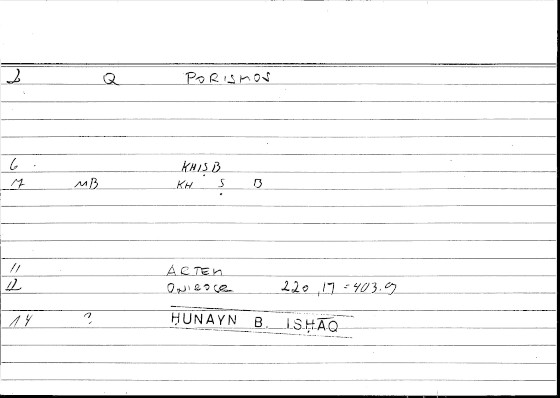 2 Q PORISMOS
6 KHIṢB
7 MB KH Ṣ B
11 ARTEM
12 ONIROCR 220,17=403.9
14 ? ḤUNAYN B. ISḤĀQ